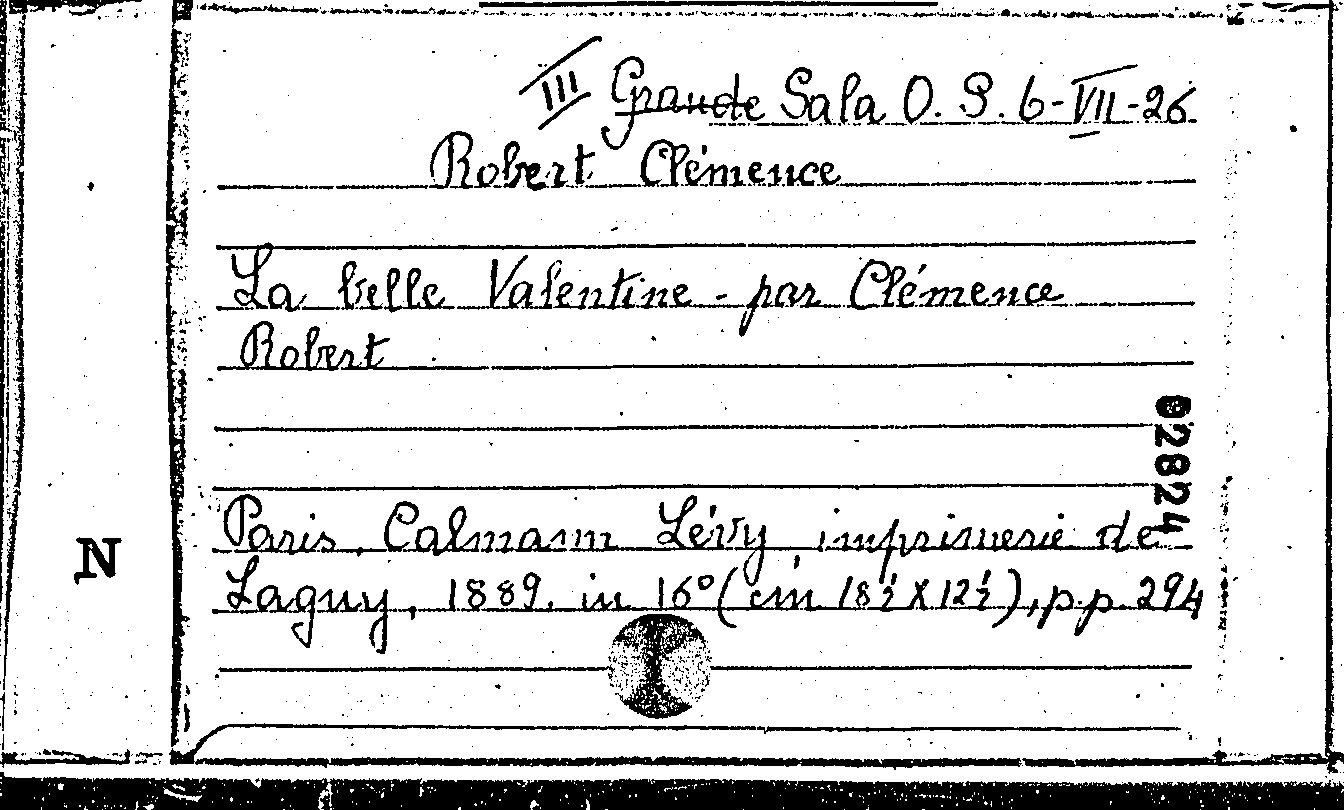 III Grande Sala O. S. 6-VII-26
Robert Clémence
La belle Valentine - par Clémence
Robert
02824
Paris, Calmann Lévy, imprimerie de
Laguy, 1889. in 16° (cm. 18½ X 12½), p.p. 294
N